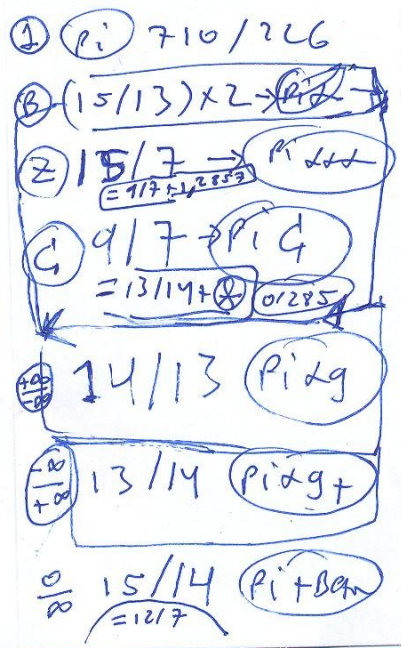 1 Pi 710/226
B (15/13)×2→
Z 15/7 → Pi ααα
=9/7+1,2857
G 9/7→Pi G
=13/14+ 01285
+∞/-∞ 14/13 Piαg
-∞/+∞ 13/14 Piαg+
0/∞ 15/14
=12/7